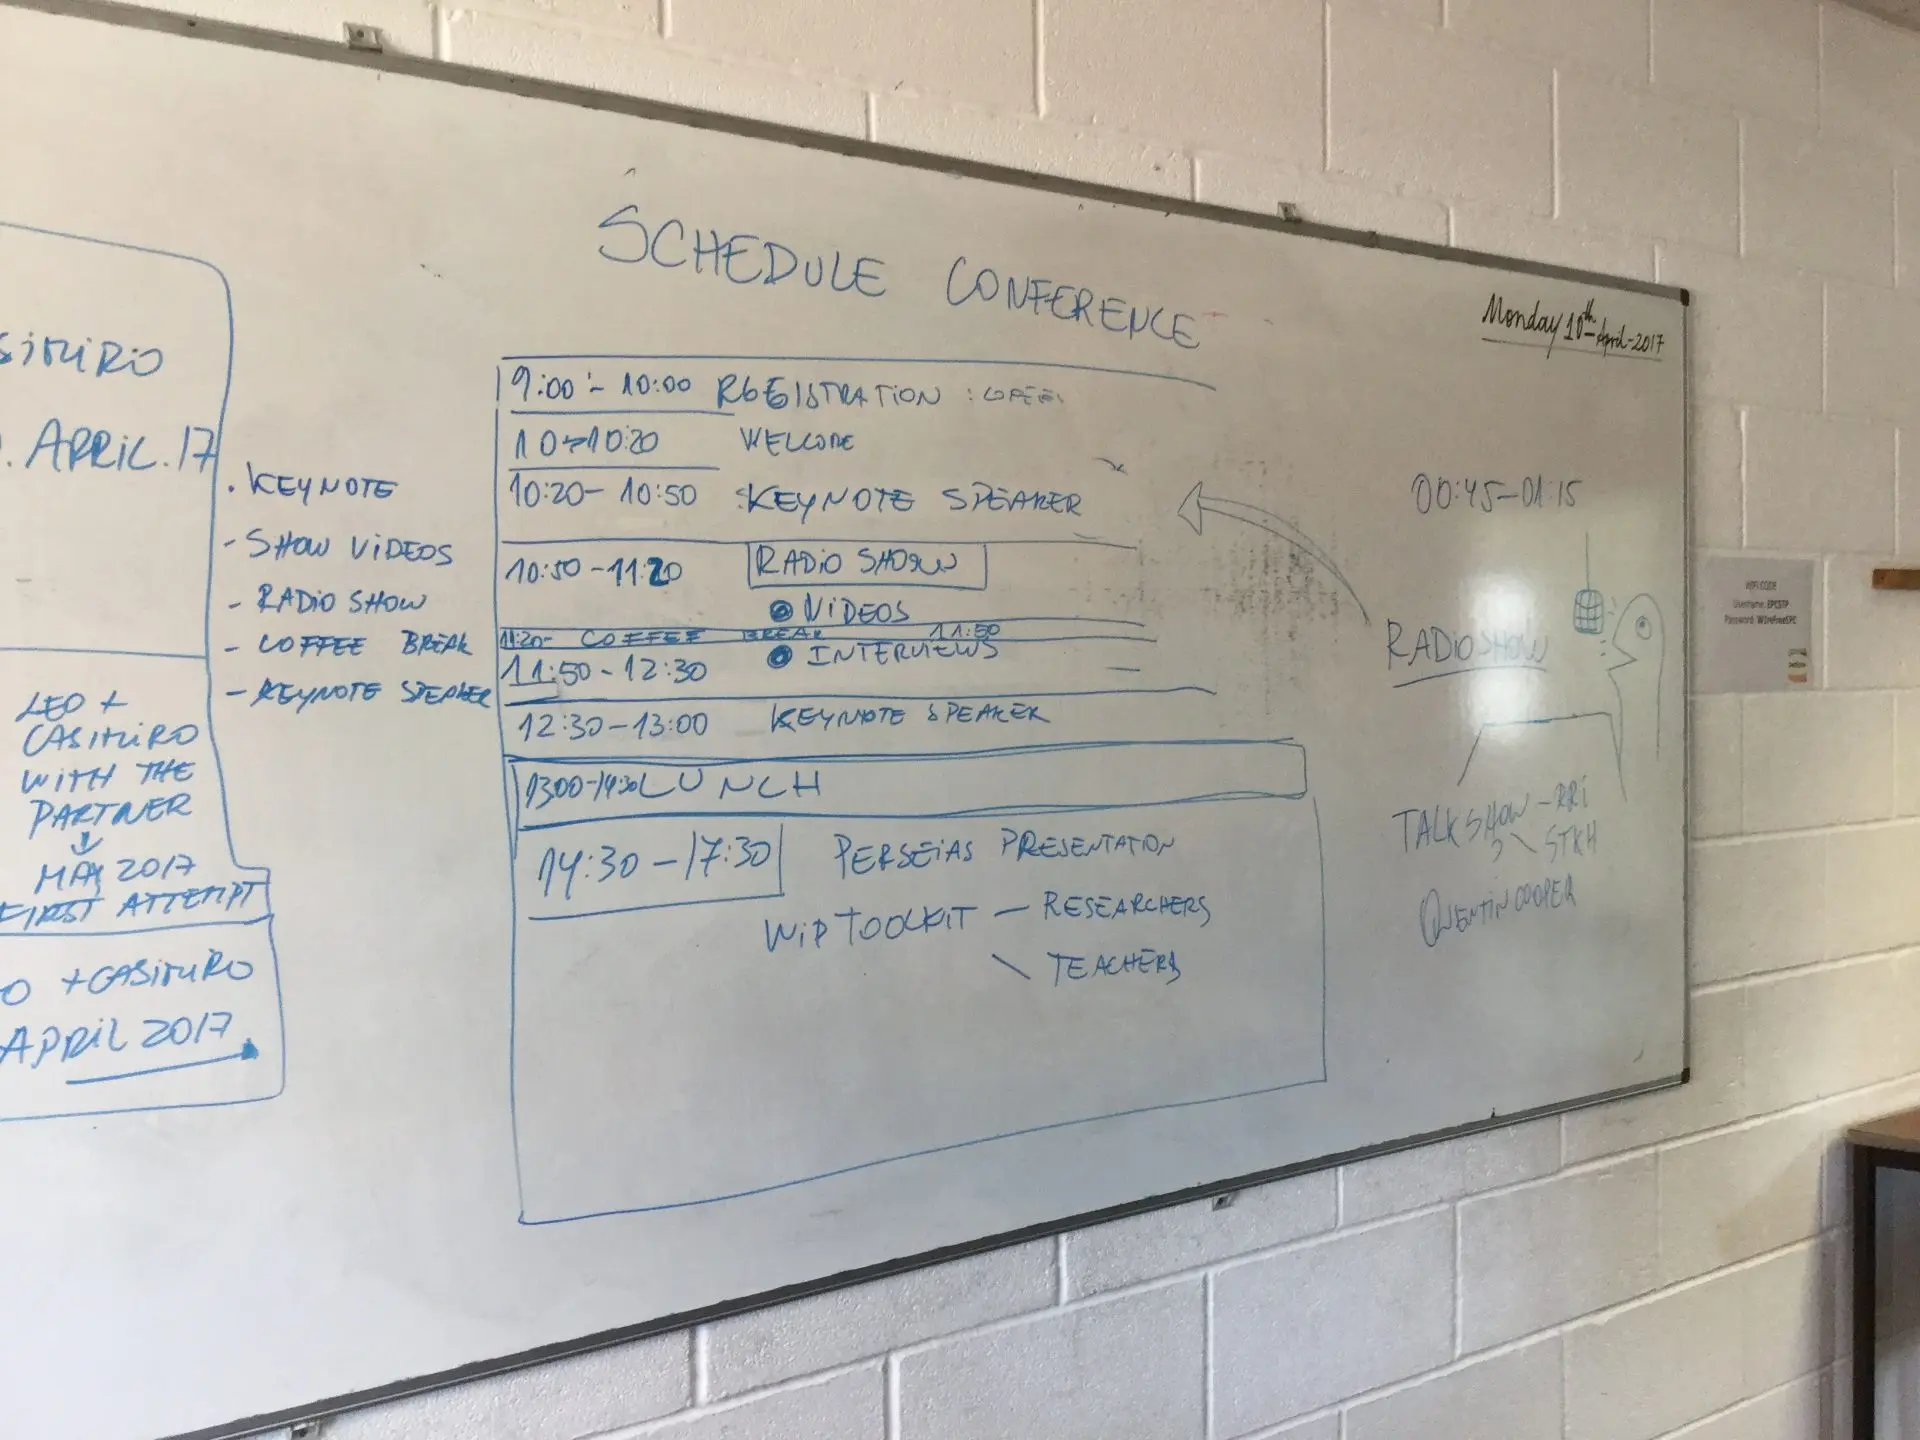 SCHEDULE CONFERENCE
Monday 10th April-2017
9:00 - 10:00 REGISTRATION :
10→10:20 WELCOME
10:20- 10:50 :KEYNOTE SPEAKER
10:50 -11:20 RADIO SHOW
VIDEOS
11:20- COFFEE BREAK 11:50
INTERVIEWS
11:50 - 12:30
12:30-13:00 KEYNOTE SPEAKER
13:00-14:30 LUNCH
14:30 - 17:30 PERSEIAS PRESENTATION
WIP TOOLKIT - RESEARCHERS
\ TEACHERS
. APRIL.17
. KEYNOTE
- SHOW VIDEOS
- RADIO SHOW
- COFFEE BREAK
- KEYNOTE SPEAKER
LEO +
CASIMIRO
WITH THE
PARTNER
↓
MAY 2017
FIRST ATTEMPT
O + CASIMIRO
APRIL 2017
00:45-01:15
RADIO SHOW
TALK SHOW - RRI
\ STKH
QUENTIN COOPER
WIFI CODE
Username: 
Password: WIreFreeEPC